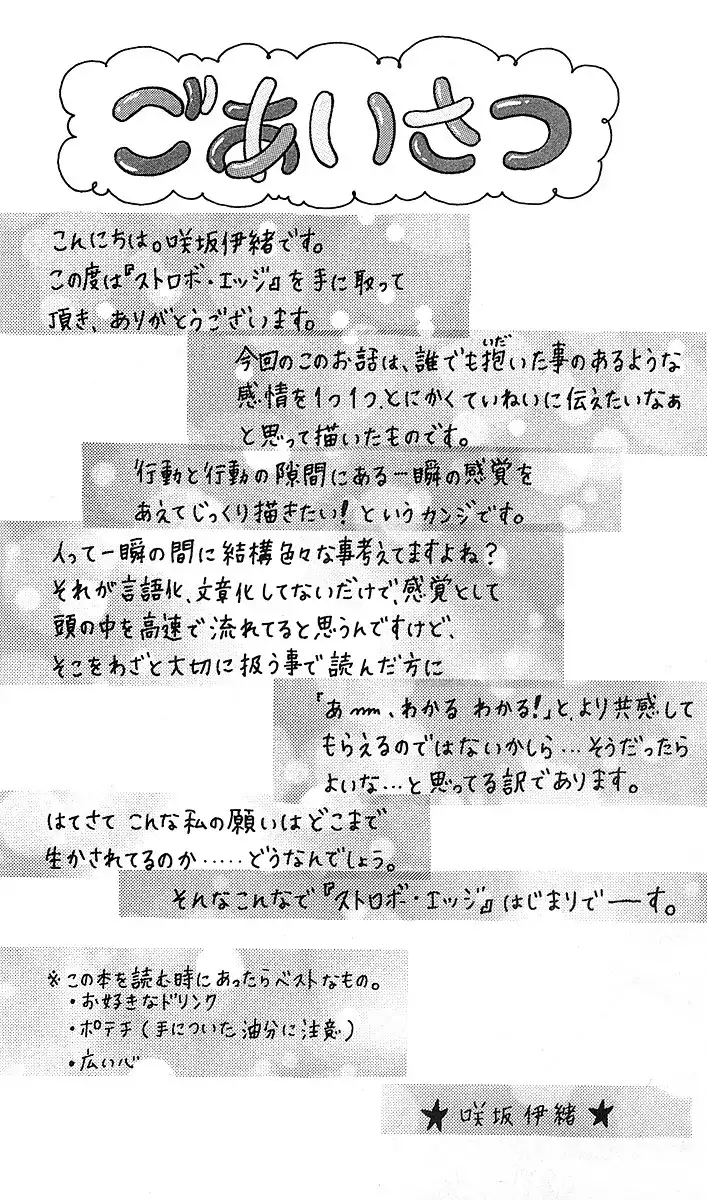 ごあいさつ
こんにちは。咲坂伊緒です。
この度は『ストロボ・エッジ』を手に取って
頂き、ありがとうございます。
今回のこのお話は、誰でも抱いた事のあるような
いだ
感情を1つ1つ、とにかくていねいに伝えたいなぁ
と思って描いたものです。
行動と行動の隙間にある一瞬の感覚を
あえてじっくり描きたい!というカンジです。
人って一瞬の間に結構色々な事考えてますよね?
それが言語化、文章化してないだけで、感覚として
頭の中を高速で流れてると思うんですけど、
そこをわざと大切に扱う事で読んだ方に
『あ〰、わかるわかる!』と、より共感して
もらえるのではないかしら…そうだったら
よいな…と思ってる訳であります。
はてさてこんな私の願いはどこまで
生かされてるのか……どうなんでしょう。
そんなこんなで『ストロボ・エッジ』はじまりでーす。
※この本を読む時にあったらベストなもの。
・お好きなドリンク
・ポテチ(手についた油分に注意)
・広い心
★咲坂伊緒★